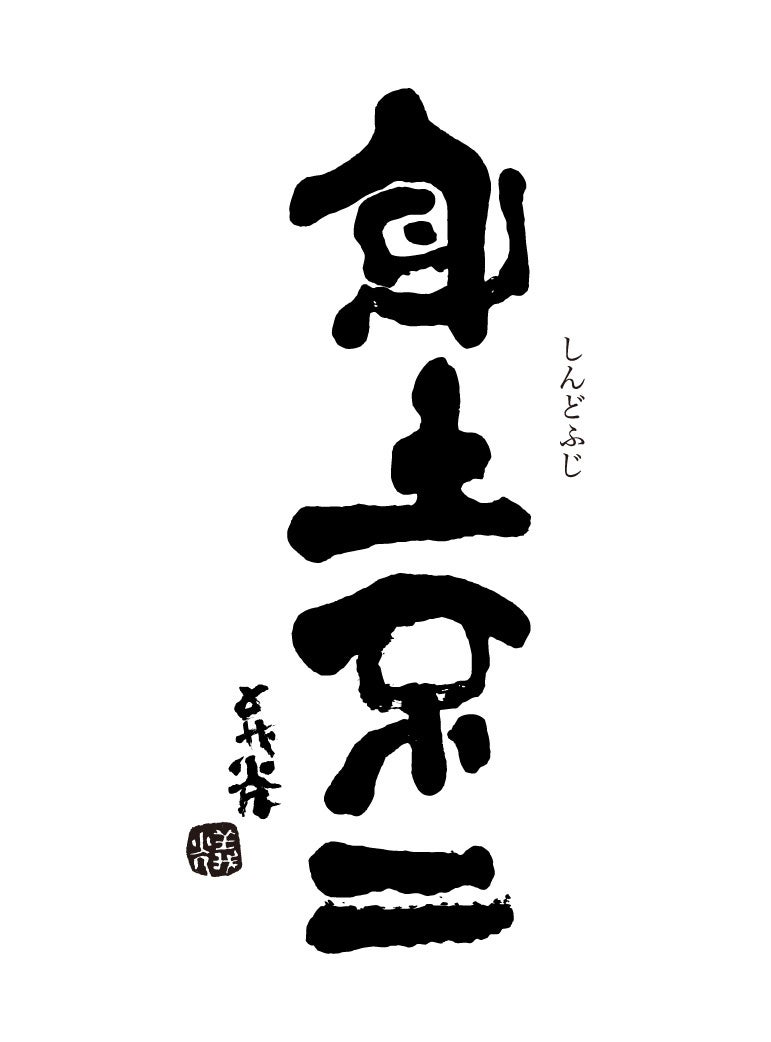 身土不二
しんどふじ